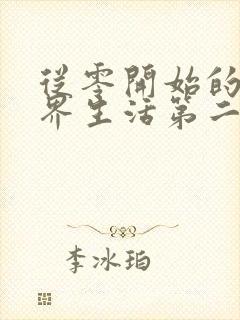 從零開始的
界生活第二
李冰珀